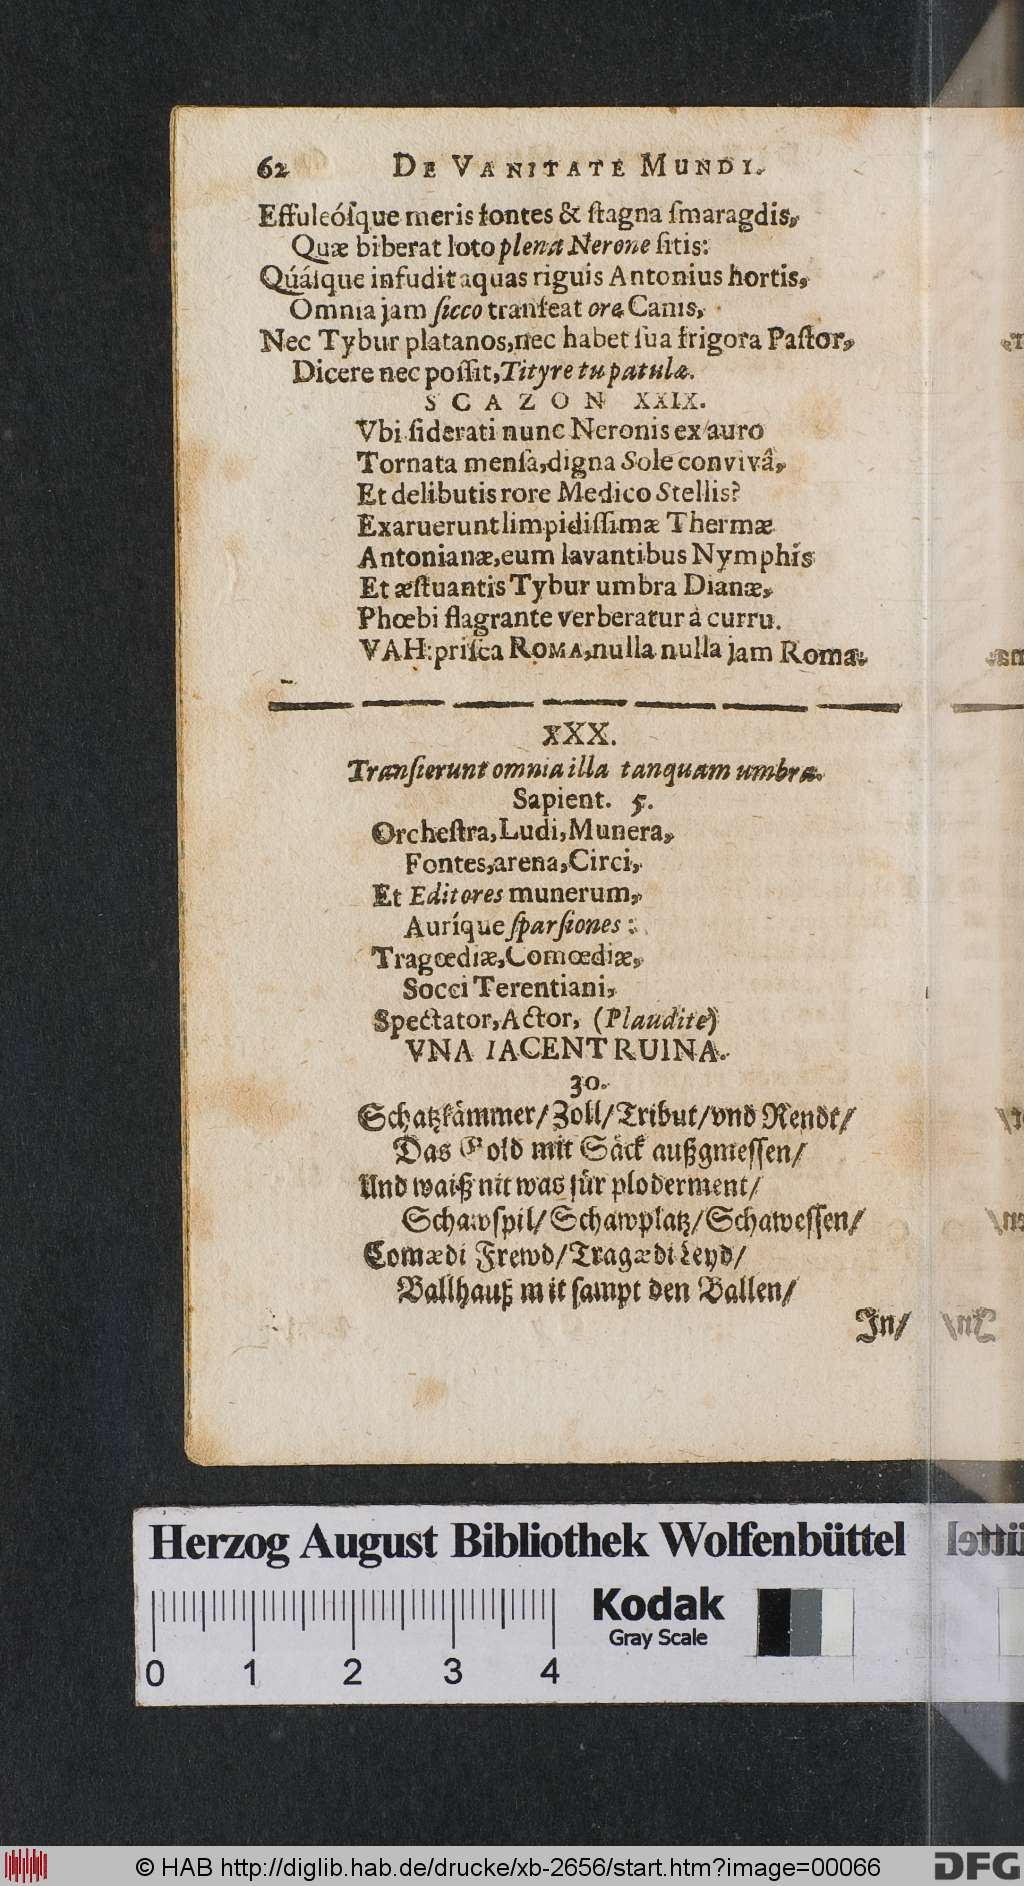 62 DE VANITATE MUNDI.
Effuleósque meris fontes & ſtagna ſmaragdis,
Quæ biberat loto plena Nerone ſitis:
Qúáſque infudit aquas riguis Antonius hortis,
Omnia jam ſicco tranſeat ore Canis,
Nec Tybur platanos, nec habet ſua frigora Paſtor,
Dicere nec poſſit, Tityre tu patulæ.
SCAZON XXIX.
Vbi ſiderati nunc Neronis ex auro
Tornata menſa, digna Sole convivâ,
Et delibutis rore Medico Stellis?
Exaruerunt limpidiſſimæ Thermæ
Antonianæ, cum lavantibus Nymphis
Et æſtuantis Tybur umbra Dianæ,
Phœbi flagrante verberatur à curru.
VAH: priſca ROMA, nulla nulla jam Roma.
XXX.
Tranſierunt omnia illa tanquam umbra.
Sapient. 5.
Orcheſtra, Ludi, Munera,
Fontes, arena, Circi,
Et Editores munerum,
Auríque ſparſiones:
Tragœdiæ, Comœdiæ,
Socci Terentiani,
Spectator, Actor, (Plaudite)
VNA IACENT RUINA.
30.
Schatzkämmer/ Zoll/ Tribut/ vnd Rendt/
Das Gold mit Säck außgmeſſen/
Und waiß nit was für ploderment/
Schawſpil/ Schawplatz/ Schaweſſen/
Comædi Frewd/ Tragædi Leyd/
Ballhauß mit ſampt den Ballen/
In/
Herzog August Bibliothek Wolfenbüttel
Kodak
Gray Scale
0 1 2 3 4
© HAB http://diglib.hab.de/drucke/xb-2656/start.htm?image=00066
DFG